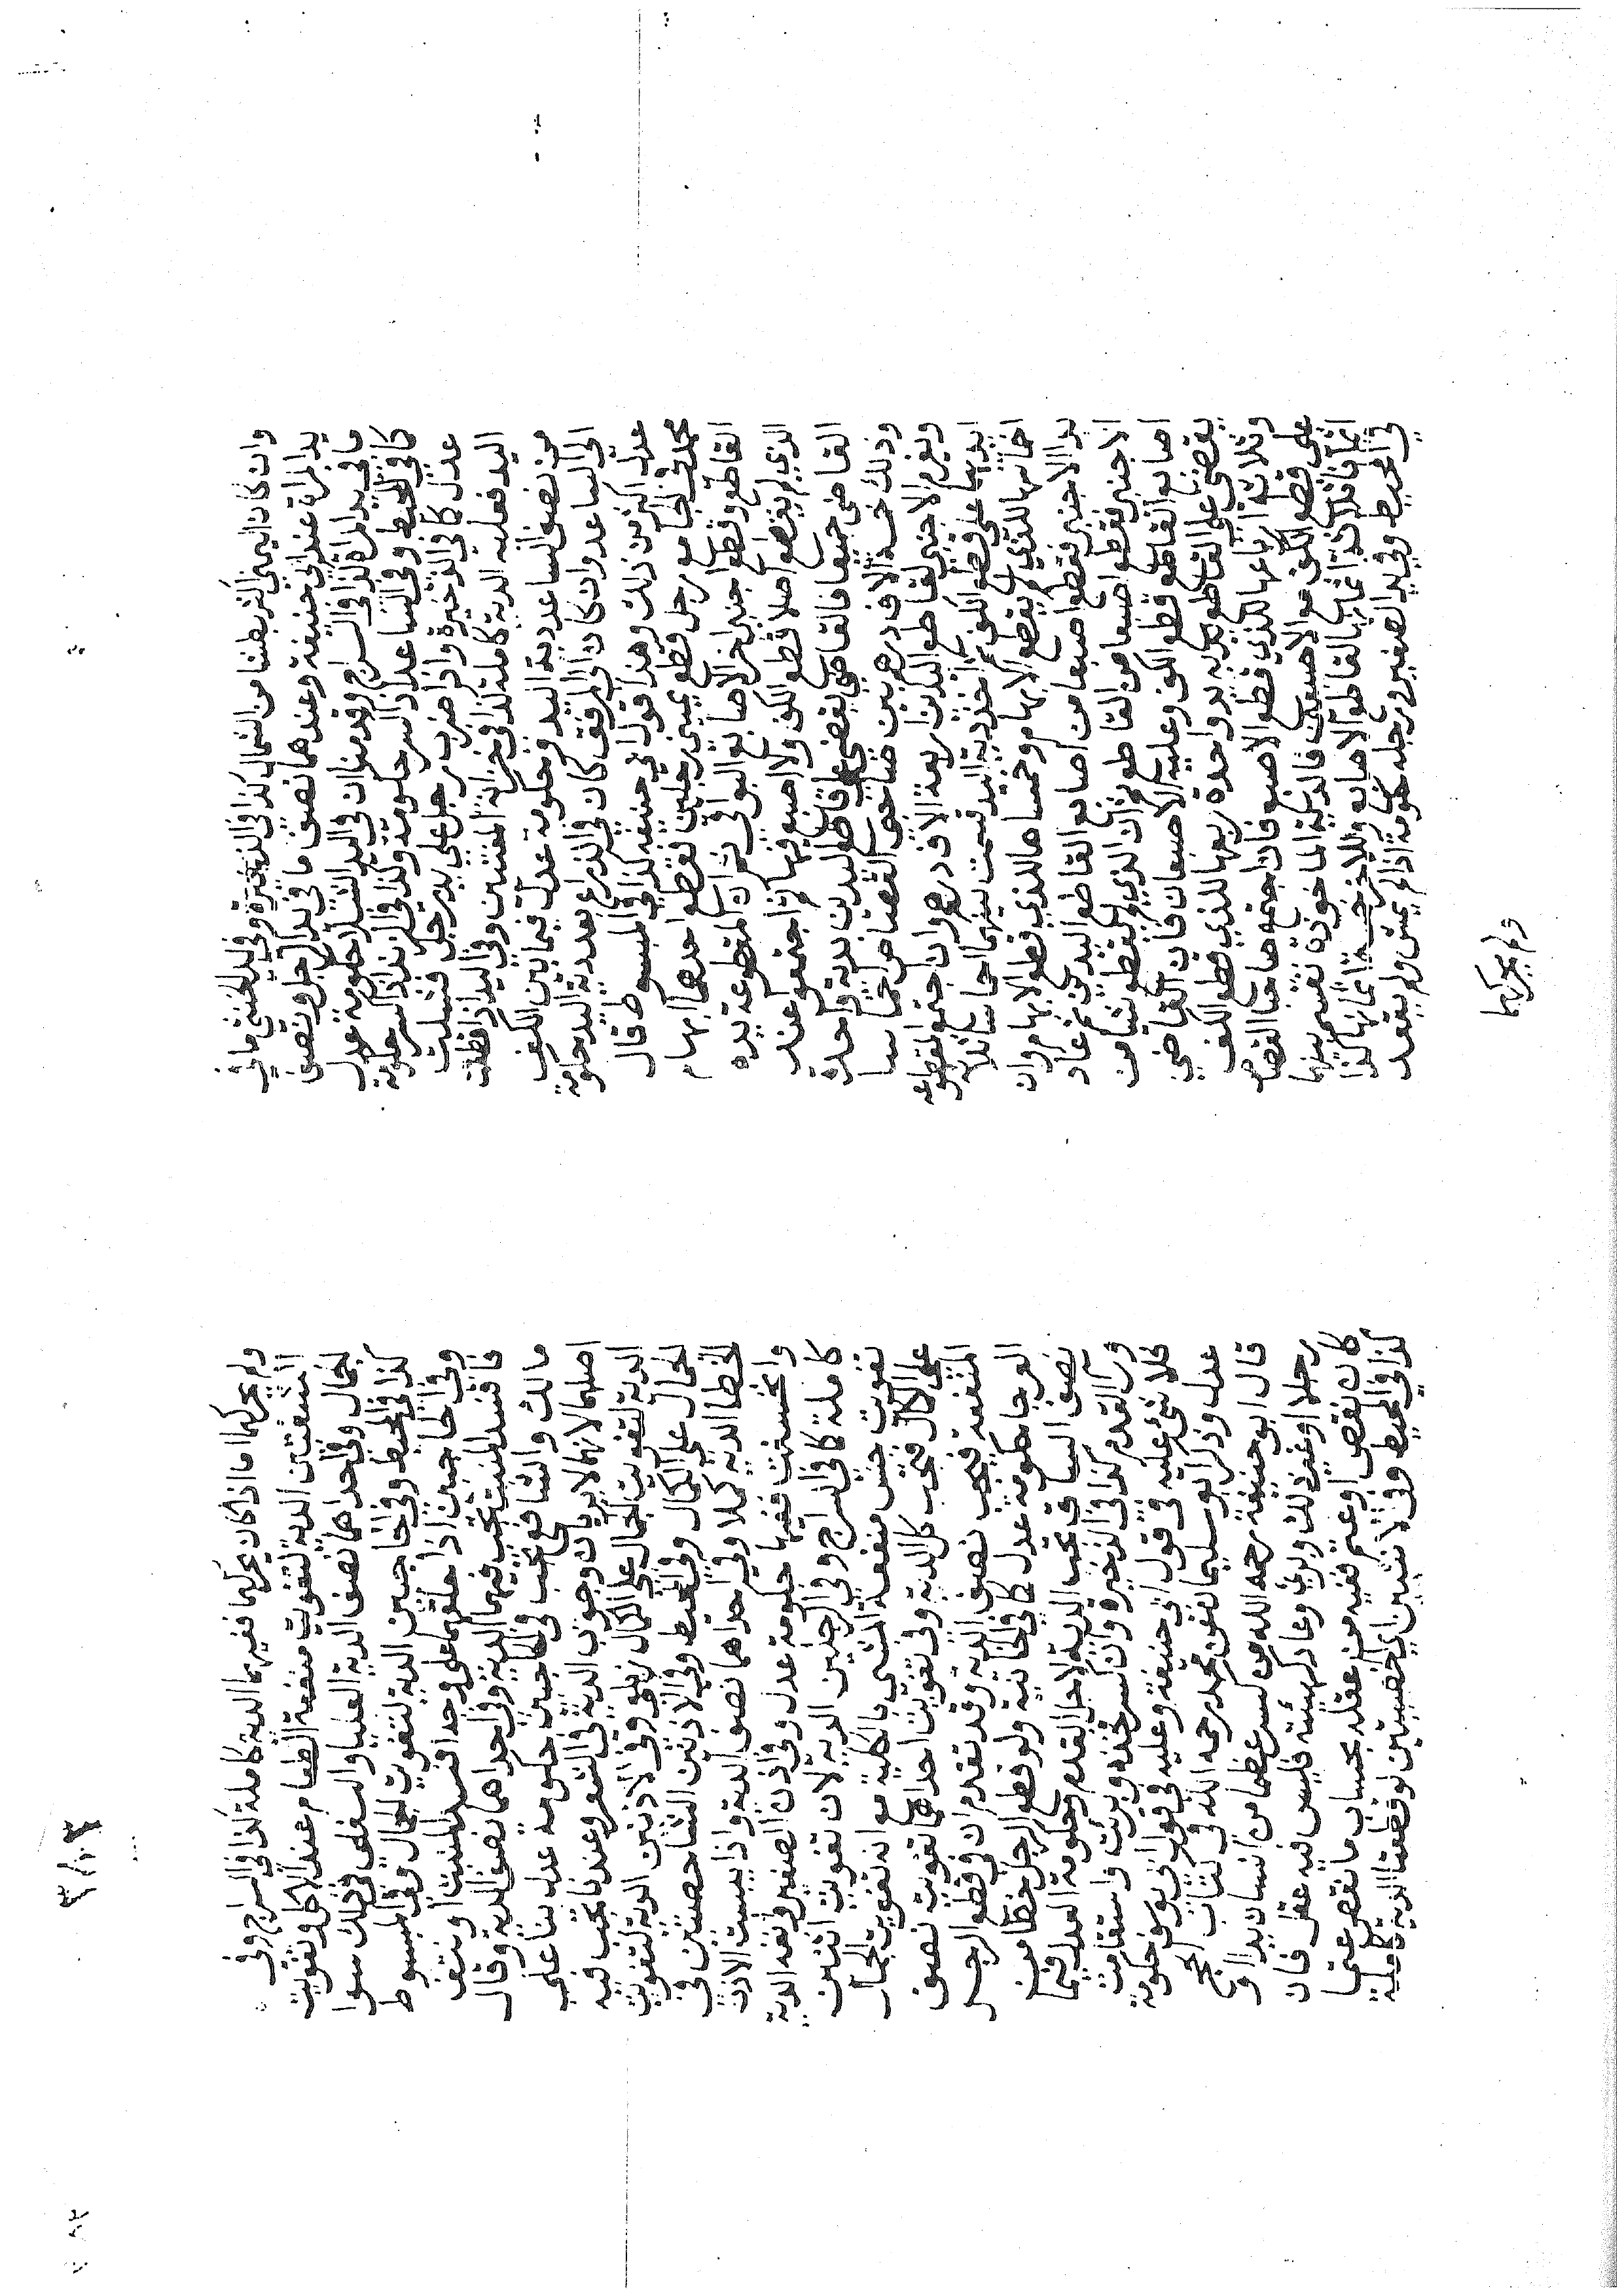 وان كان اليمنى اكثر بطشا من الشمال كذا في الذخيرة وفي يد الخنثى ما في
يد المراة عند ابي حنيفة وعندهما نصف ما في يد الرجل ونصف
ما في يد المراة كذا في السراج وقد مر ان في اليد الشلا حكومة عدل
كما في المحيط وفي الساعد اذا كسر حكومة وكذا في الزند اذا كسر حكومة
عدل كما في الذخيرة واذا ضرب رجل على يد رجل فشلت
اليد فعليه الدية كاملة كذا في خزانة المفتين وفي اليد اذا قطعت
من نصف الساعد دية اليد وحكومة عدل فيما بين الكف
الى الساعد وان كان الى المرفق كان في الذراع بعد دية اليد حكومة
عدل اكثر من ذلك وهذا قول ابي حنيفة كذا في المبسوط قال
محمد في الجامع رجل قطع يميني رجلين فقطع احدهما ابهام
القاطع وقطع اجنبي اخر الاصابع البواقي ثم ان المقطوعة يده
الذي لم يقطع اصلا قطع الكف ولا اصبع فيها ثم اجتمعوا عند
القاضي جميعا فالقاضي يقضي على قاطع اليدين بدية واحدة
وذلك خمسة الاف درهم بين صاحبي القصاص اخماسا
ويغرم الاجنبي لقاطع اليدين اربعة الاف درهم وان اجتمع المقطوعة
ايديهما على قطع الكف ثم اخذ دية اليد قسمت بينهما اخماسا ثلاثة
اخماسها للذي لم يقطع الابهام وخمساها للذي قطع الابهام وان
بدا الاجنبي فقطع اصبعا من اصابع القاطع اليدين ثم عاد
الاجنبي فقطع اصبعا من القاطع ثم ان الذي لم يقطع شيا من
اصابع القاطع قطع الكف وعليه الاصبعان فان القاضي
يقضي على القاطع بدية يد واحدة ربعها للذي قطع الكف
وثلاثة ارباعها للذي قطع الاصبع فان اجتمع صاحبا القصاص
على قطع الكف مع الاصبعين فالدية الماخوذة تقسم بينهما
اثمانا ثلاثة اثمانها لقاطع الاصابع وللاخر خمسة اثمانها كذا
في المحيط وفي يد الصغير ورجله حكومة اذا لم يمش ولم يقعد
ولم يحركهما
ولم يحركهما اما اذا كان يحركهما ففيهما الدية كاملة كذا في السراج وفي
الشفتين الدية لتفويت منفعة الطعام عند الاكل وتفويت
الجمال وفي احداهما نصف الدية العليا والسفلى في ذلك سوا
كذا في المحيط وفي الحاجبين الدية لتفويت الجمال وفي المبسوط
وفي الحاجبين اذا حلقهما على وجه افسد المنبت او نتف
فافسد المنبت تجب فيهما الدية وفي احداهما نصف الدية وقال
مالك والشافعي تجب في الحاجبين حكومة عدل بنا على
اصلهما لانهما لا يريان وجوب الدية في الشعر وعندنا تجب فيه
الدية لتفويت الجمال على الكمال زيلعي وفي الاذنين الدية لتفويت
الجمال على الكمال وفي المحيط وفي الاذنين الشاخصتين في
الخطا الدية كملا وفي احداهما نصف الدية واذا يبست الاذن
وانخسفت ففيها حكومة عدل وفي اذن الصغير وانفه الدية
كاملة كما في السراج وفي الرجلين الدية لان تفويت اثنين
تفويت جنس منفعة المشي بالكلية مع انه تفويت الجمال
على الكمال فتجب كل الدية وفي تفويت احداهما تفويت نصف
المنفعة فيجب نصف الدية وقد تقدم ان في قطع الرجل
العرجا حكومة عدل كما في الخانية ولو قطع الرجل خطا من
نصف الساق تجب الدية لاجل القدم وحكومة العدل فيما
ورا القدم كذا في الذخيرة وان كسر فخذه وبرئت واستقامت
فلا شئ عليه في قول ابي حنيفة وعليه في قول ابي يوسف حكومة
عدل وذكر ابو سليمان عن محمد رحمه الله في كتاب الحج
قال ابو حنيفة رحمه الله من كسر عظما من انسان يدا او
رجلا او غير ذلك وبرئ وعاد كهيئته فليس فيه عقل فان
كان نقص او عثم ففيه من عقله بحساب ما نقص عثمها
كذا في المحيط وفي الانثيين اي خصيتين لو قطعتا الدية كاملة